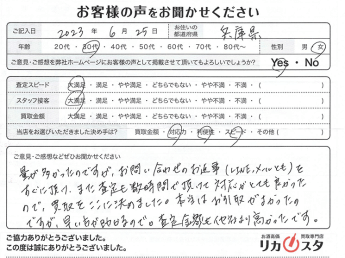 お客様の声をお聞かせください
ご記入日 2023年 6月 25日 お住いの都道府県 兵庫県
年齢 20代・30代・40代・50代・60代・70代・80代〜 性別 男・女
ご意見・ご感想を弊社ホームページにお客様の声として掲載させて頂いてもよろしいでしょうか? Yes・No
査定スピード 大満足・満足・やや満足・どちらでもない・やや不満・不満・( )
スタッフ接客 大満足・満足・やや満足・どちらでもない・やや不満・不満・( )
買取金額 大満足・満足・やや満足・どちらでもない・やや不満・不満・( )
当店をお選びいただきました決め手は? 買取金額・対応力・利便性・スピード・その他( )
ご意見・ご感想などぜひお聞かせください
量が多かったのですが、お問い合わせのお返事(LINE、メールとも)を
すぐに頂け、また査定も数時間で頂けて対応がとても良かった
ので、買取をここに決めました。本当はお引取がよかったの
ですが、早い方が助かるので。査定金額も他社より高かったです。
ご協力ありがとうございました。
この度は誠にありがとうございました。
お酒高価買取専門店
リカスタ